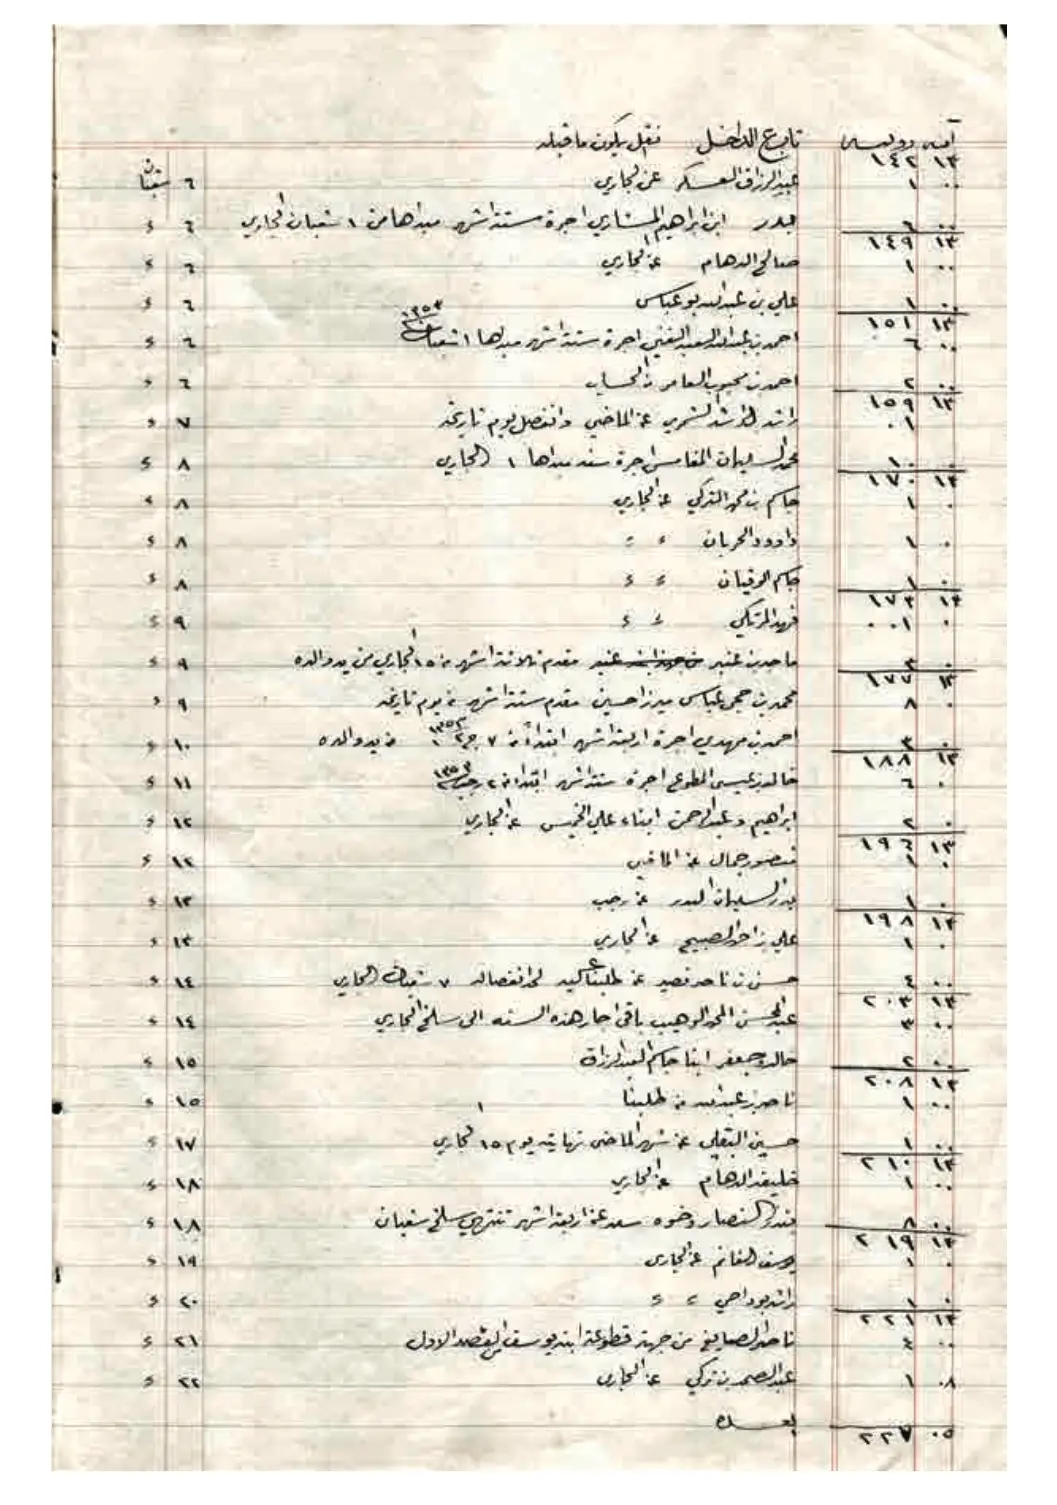 آنه روبيه تابع الداخل نقل يكون ما قبله
١٣ ١٤٢
٠٠ ١ عبدالرزاق العسكر عن الجاري ٦ شعبان
٠٠ ٦ بدر ابن ابراهيم المشاري اجرة ستة اشهر مبداها من ١ شعبان الجاري ٦ ء
١٣ ١٤٩
٠٠ ١ صالح الدهام عن الجاري ٦ ء
٠٠ ١ علي بن عبدالله بو عباس ٦ ء
١٣ ١٥١
٠٠ ٦ احمد بن عبدالله السعيد اجرة ستة اشهر مبداها ١ شعبان ١٣٥٣ ٦ ء
٠٠ ٢ احمد بن محبوب العامر الحساب ٦ ء
١٣ ١٥٩
٠١ راشد الراشد الشمري عن الماضي وانفصل يوم تاريخه ٧ ء
٠ ١٠ محمد السليمان المقامس اجرة سنه مبداها ١ الجاري ٨ ء
١٣ ١٧٠
٠ ١ جاسم بن محمد التركي عن الجاري ٨ ء
٠ ١ داوود الحربان ء ء ٨ ء
٠ ١ جاسم الوقيان ء ء ٨ ء
١٣ ١٧٣
٠ ٠٠١ فهد المرتكي ء ء ٩ ء
٠ ٣ ماجد بن عنبر عنبر مقدم ثلاثة اشهر من ١٥ الجاري من يد والده ٩ ء
١٣ ١٧٧
٠ ٨ محمد بن حجي عباس ميرزا حسين مقدم ستة اشهر من يوم تاريخه ٩ ء
٠ ٣ احمد بن مهدي اجرة اربعة اشهر ابتداءً من ٧ ج ١٣٥٣ من يد والده ١٠ ء
١٣ ١٨٨
٠ ٦ خالد بن عيسى المطوع اجرة ستة اشهر ابتداء من ٢ رجب ١٣٥٣ ١١ ء
٠ ٢ ابراهيم وعبدالرحمن ابناء علي الخميس عن الجاري ١٢ ء
١٣ ١٩٦
٠ ١ منصور جمال عن الماضي ١٢ ء
٠ ١ بدر السليمان البدر عن رجب ١٣ ء
١٣ ١٩٨
٠ ١ علي بن احمد الصبيح عن الجاري ١٣ ء
٠٠ ٤ حسن بن ناصر قصير عن طلبنا عليه لحد انفصاله ٧ شعبان الجاري ١٤ ء
١٣ ٢٠٣
٠٠ ٣ عبدالمحسن المحمد الوهيب باقي اجار هذه السنه الى سلخ الجاري ١٤ ء
٠٠ ٢ خالد وجعفر ابنا جاسم العبدالرزاق ١٥ ء
١٣ ٢٠٨
٠٠ ١ ناصر بن عبدالله من طلبنا ١٥ ء
٠٠ ١ حسين البقلي عن شهر الماضي نهايته يوم ١٥ الجاري ١٧ ء
١٣ ٢١٠
٠٠ ١ خليفه الدهام عن الجاري ١٨ ء
٠٠ ٨ بندر النصار وخوه سعد عن اربعة اشهر تنتهي سلخ شعبان ١٨ ء
١٣ ٢١٩
٠ ١ يوسف الغانم عن الجاري ١٩ ء
٠ ١ راشد بوداحي ء ء ٢٠ ء
١٣ ٢٢١
٠٠ ٤ ناصر الصايغ من جهة قطوعة ابنه يوسف القصد الاول ٢١ ء
٠٨ ١ عبدالصمد بن تركي عن الجاري ٢٢ ء
٠٥ ٢٢٧ بعده